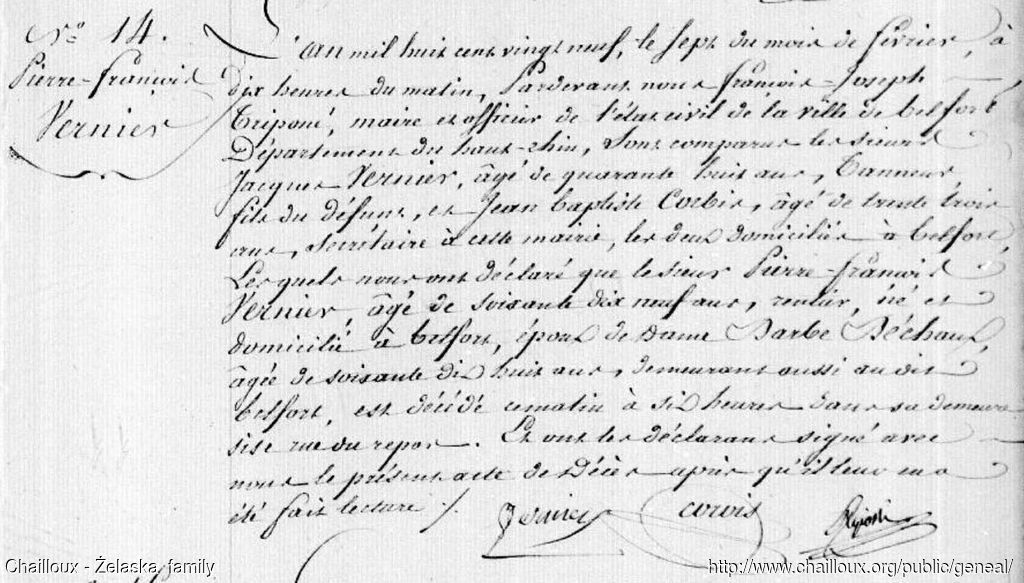 N.º 14.
Pierre-François
Vernier
L'an mil huit cent vingt neuf, le sept du mois de février, à
dix heures du matin, Pardevant nous françois-Joseph
Triponé, maire et officier de l'état civil de la ville de belfort
Département du haut-rhin, sont comparus les sieurs
Jacques Vernier, âgé de quarante huit ans, Tanneur,
fils du défunt, et Jean baptiste Corbis, âgé de trente trois
ans, Secrétaire à cette mairie, les deux domiciliés à belfort,
Lesquels nous ont déclaré que le sieur Pierre-françois
Vernier, âgé de soixante dix neuf ans, rentier, né et
domicilié à belfort, époux de Dame Barbe Béchaux,
âgée de soixante dix huit ans, demeurant aussi audit
belfort, est décédé cematin à six heures dans sa demeure
sise rue du repos. Et ont les déclarans signé avec
nous le présent acte de Décès après qu'il leur en a
été fait lecture ./.
Vernier corbis
Chailloux - Żelaska family
http://www.chailloux.org/public/geneal/